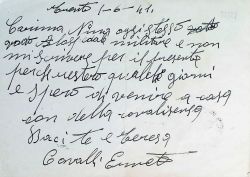 Trento 1-6-41.
Carissima Nina oggi stesso
dal militare e non
mi scrivere per il presente
perché resterò qualche giorni
e spero di venire a casa
con della convalescenza
Baci te e Teresa
Cavalli